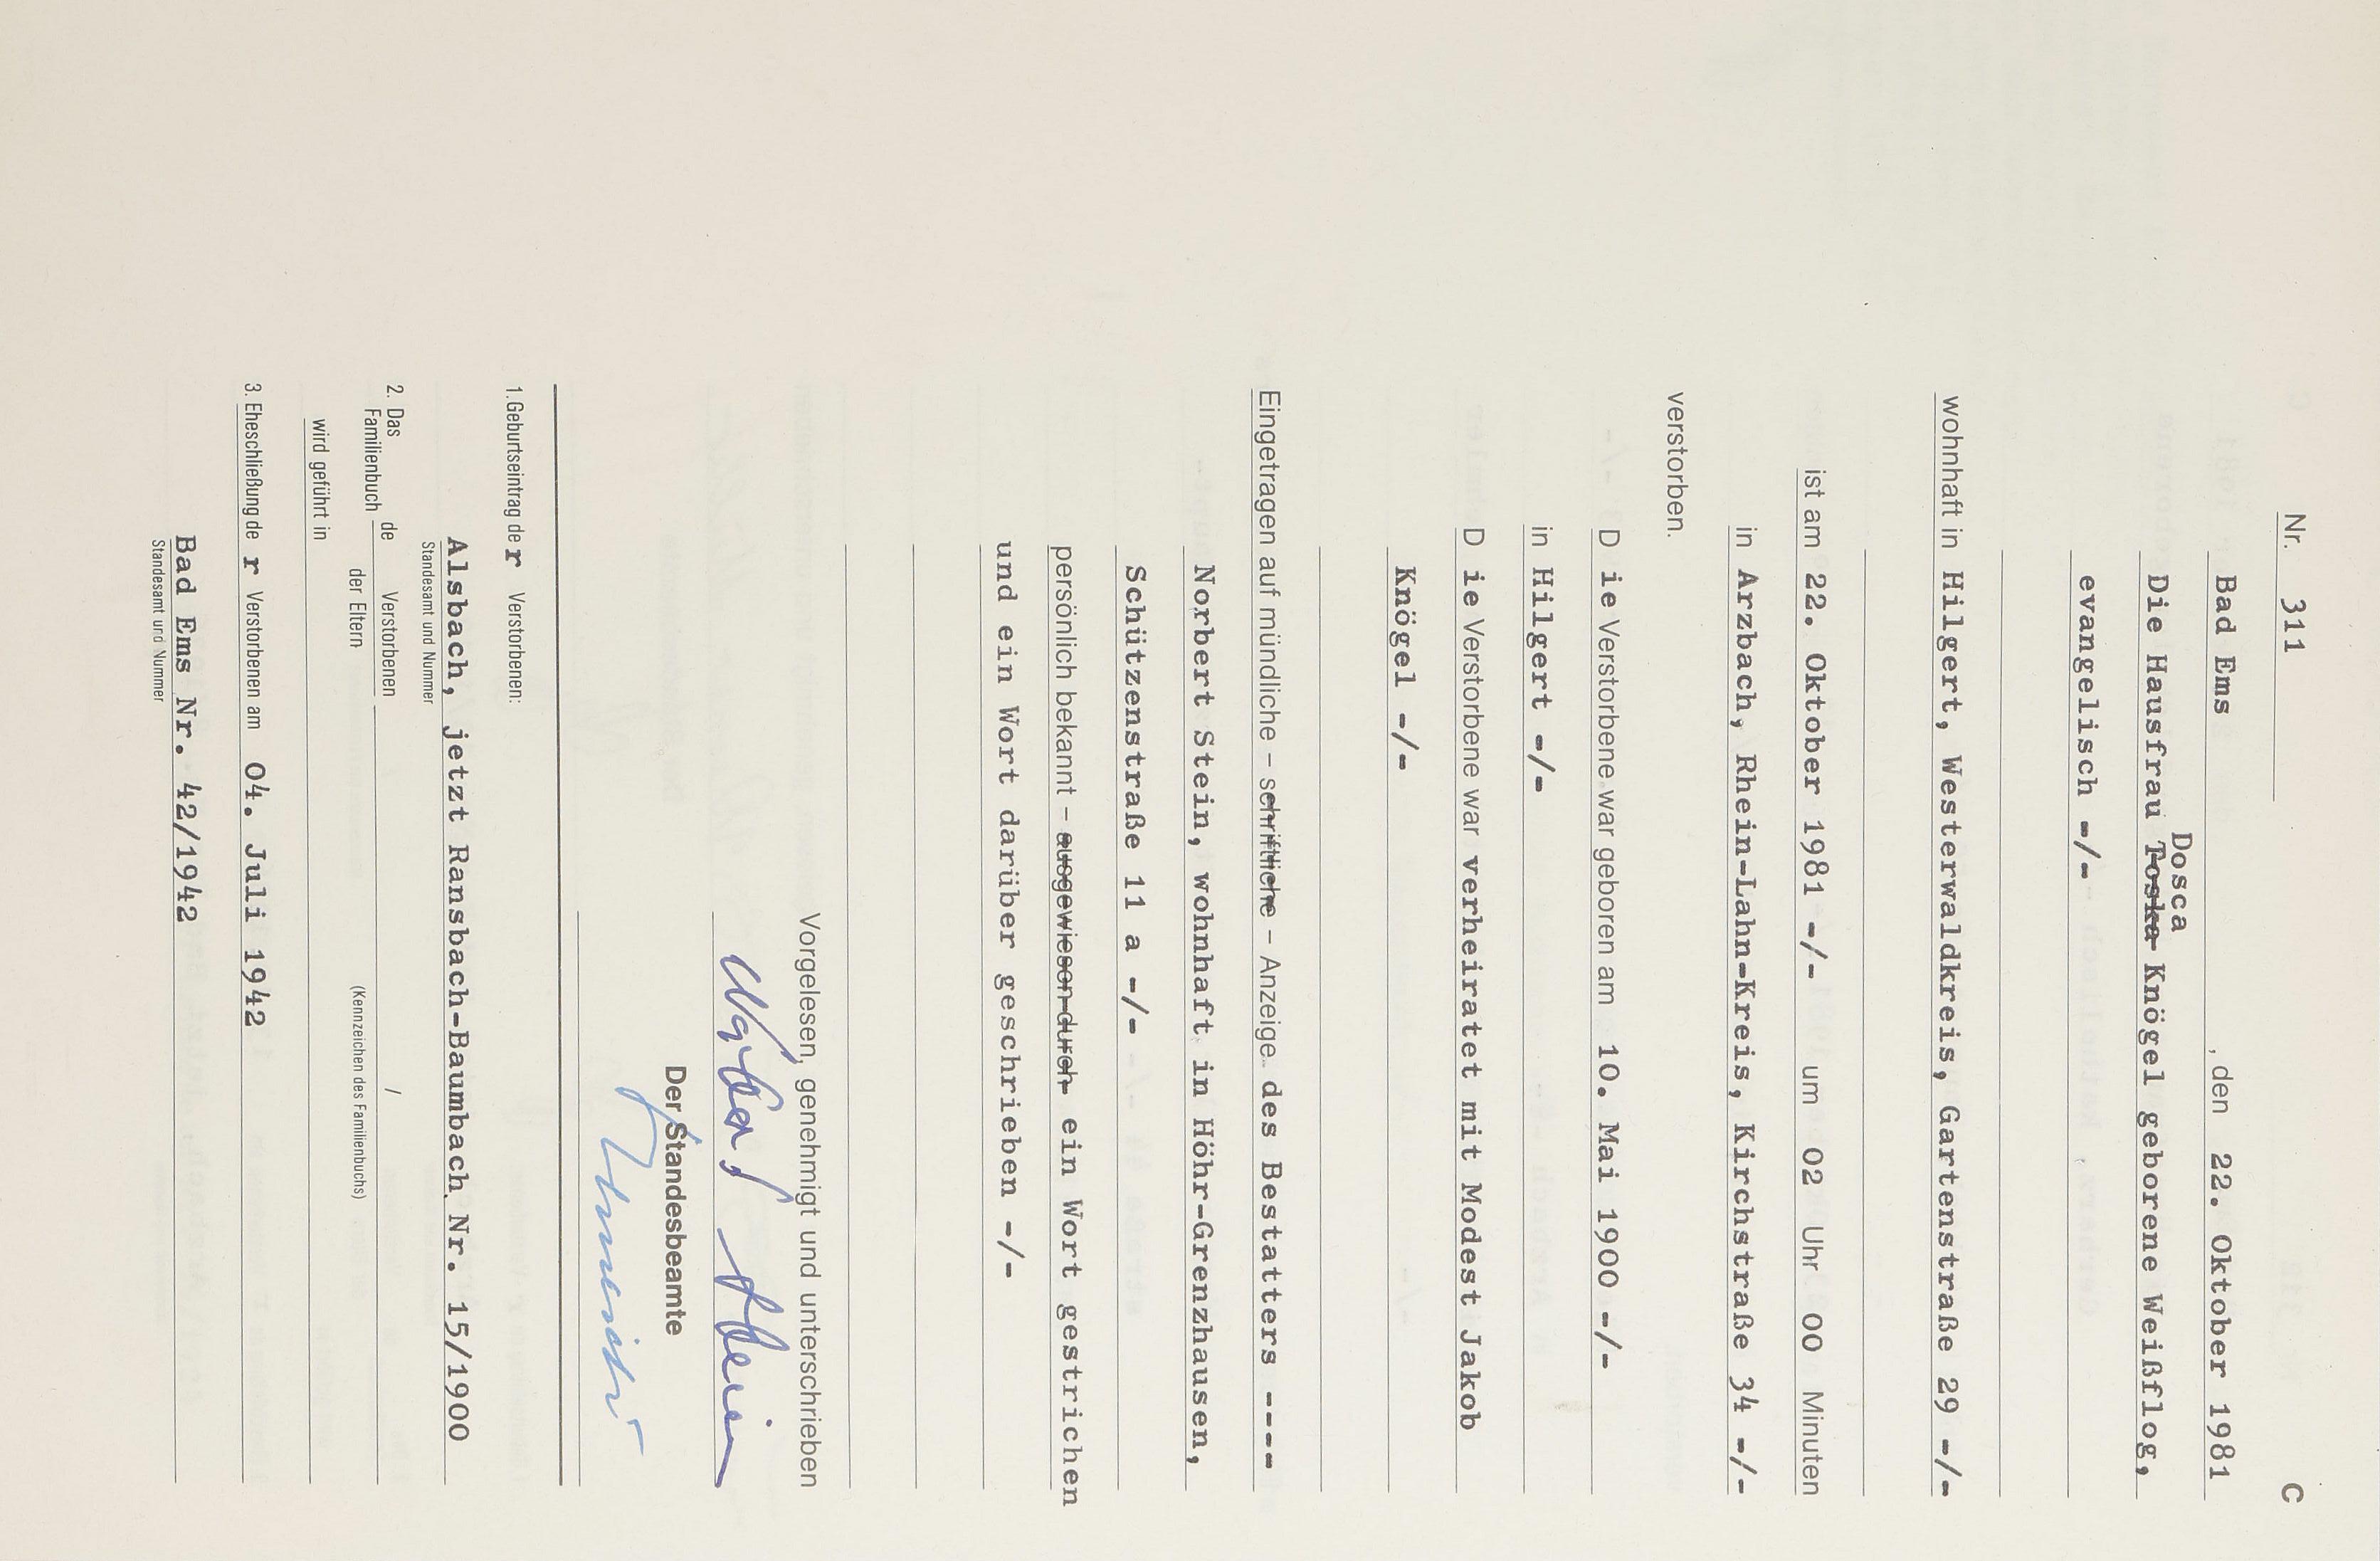 Nr. 311 C
Bad Ems , den 22. Oktober 1981
Dosca
Die Hausfrau Toska Knögel geborene Weißflog,
evangelisch -/-
wohnhaft in Hilgert, Westerwaldkreis, Gartenstraße 29 -/-
ist am 22. Oktober 1981 -/- um 02 Uhr 00 Minuten
in Arzbach, Rhein-Lahn-Kreis, Kirchstraße 34 -/-
verstorben.
D ie Verstorbene war geboren am 10. Mai 1900 -/-
in Hilgert -/-
D ie Verstorbene war verheiratet mit Modest Jakob
Knögel -/-
Eingetragen auf mündliche – schriftliche – Anzeige des Bestatters ----
Norbert Stein, wohnhaft in Höhr-Grenzhausen,
Schützenstraße 11 a -/-
persönlich bekannt – ausgewiesen durch ein Wort gestrichen
und ein Wort darüber geschrieben -/-
Vorgelesen, genehmigt und unterschrieben
Norbert Stein
Der Standesbeamte
1. Geburtseintrag de r Verstorbenen:
Alsbach, jetzt Ransbach-Baumbach Nr. 15/1900
Standesamt und Nummer
2. Das Familienbuch de Verstorbenen /
der Eltern (Kennzeichen des Familienbuchs)
wird geführt in
3. Eheschließung de r Verstorbenen am 04. Juli 1942
Bad Ems Nr. 42/1942
Standesamt und Nummer